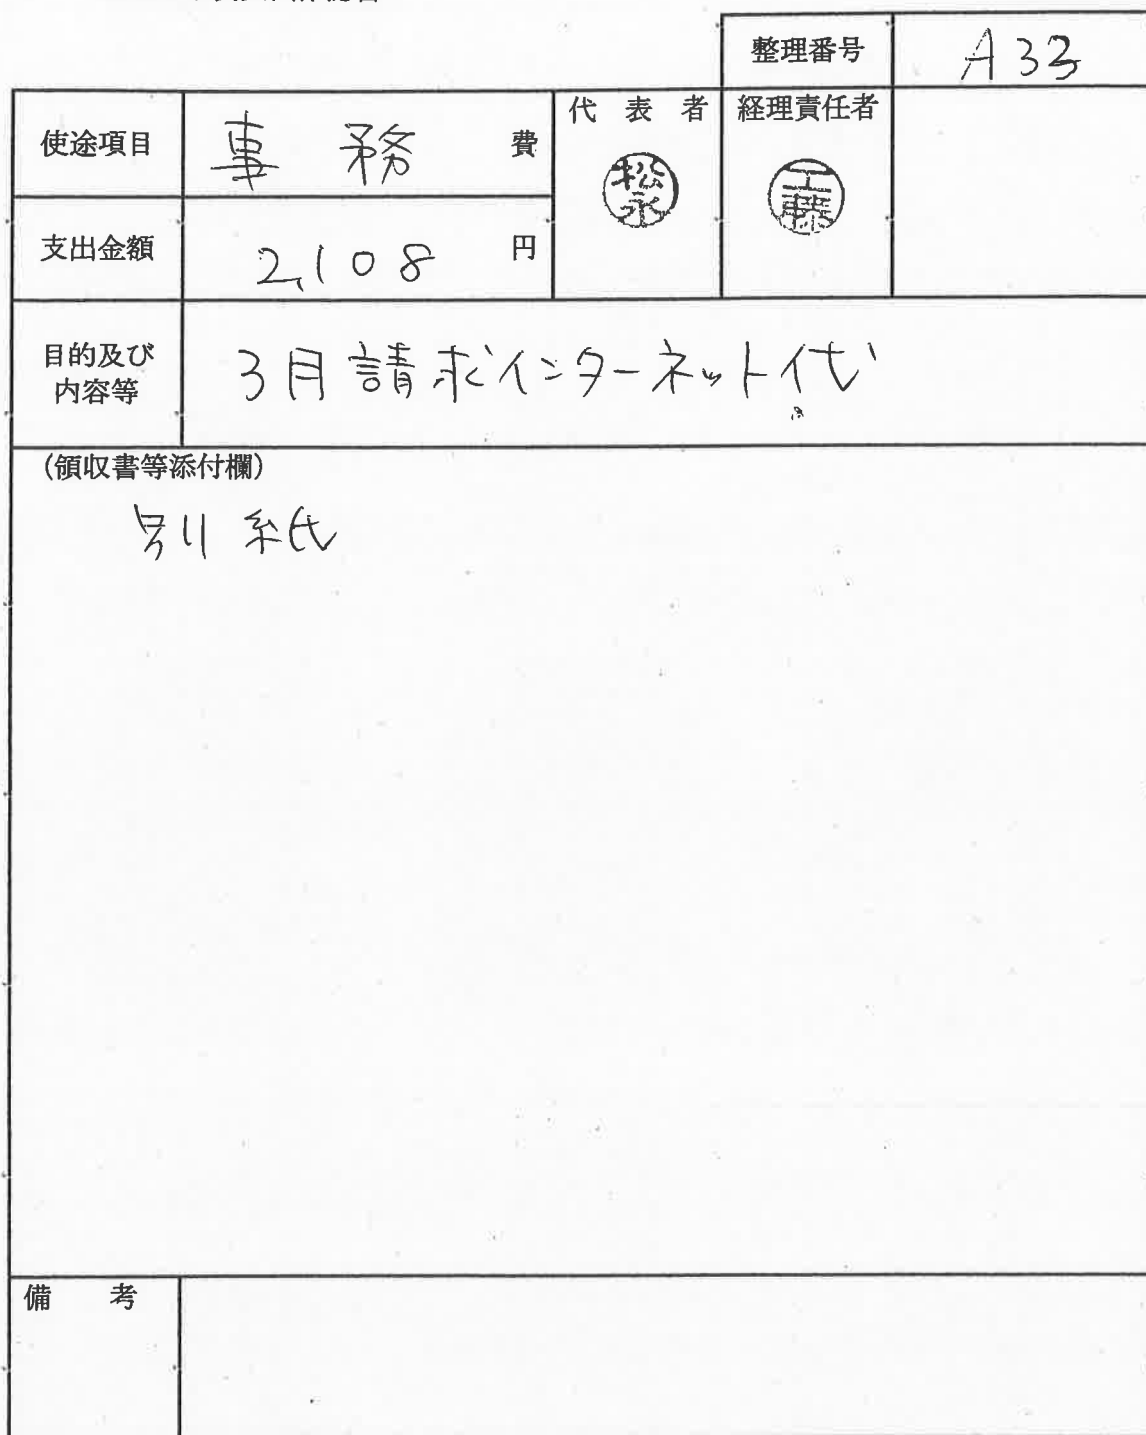 整理番号 A33
使途項目 事務 費
代表者 経理責任者
松永
工藤
支出金額 2,108 円
目的及び
内容等
3月請求インターネット代
(領収書等添付欄)
別紙
備考